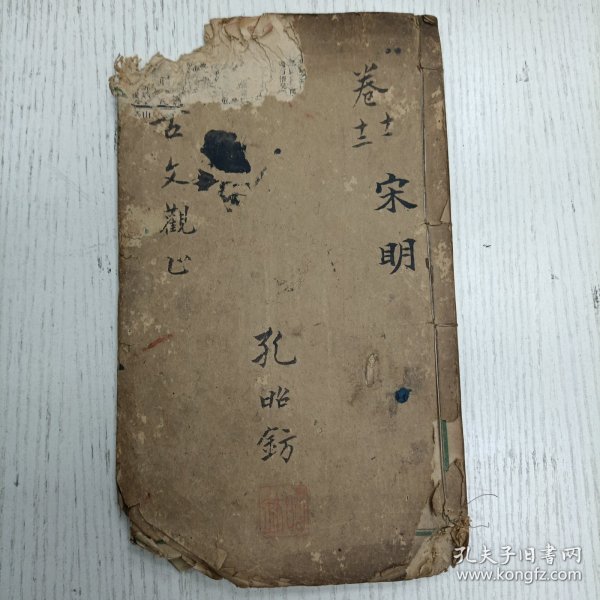 卷十一
十二
宋明
古文觀止
孔昭鈁
孔夫子旧书网
www.kongfz.com